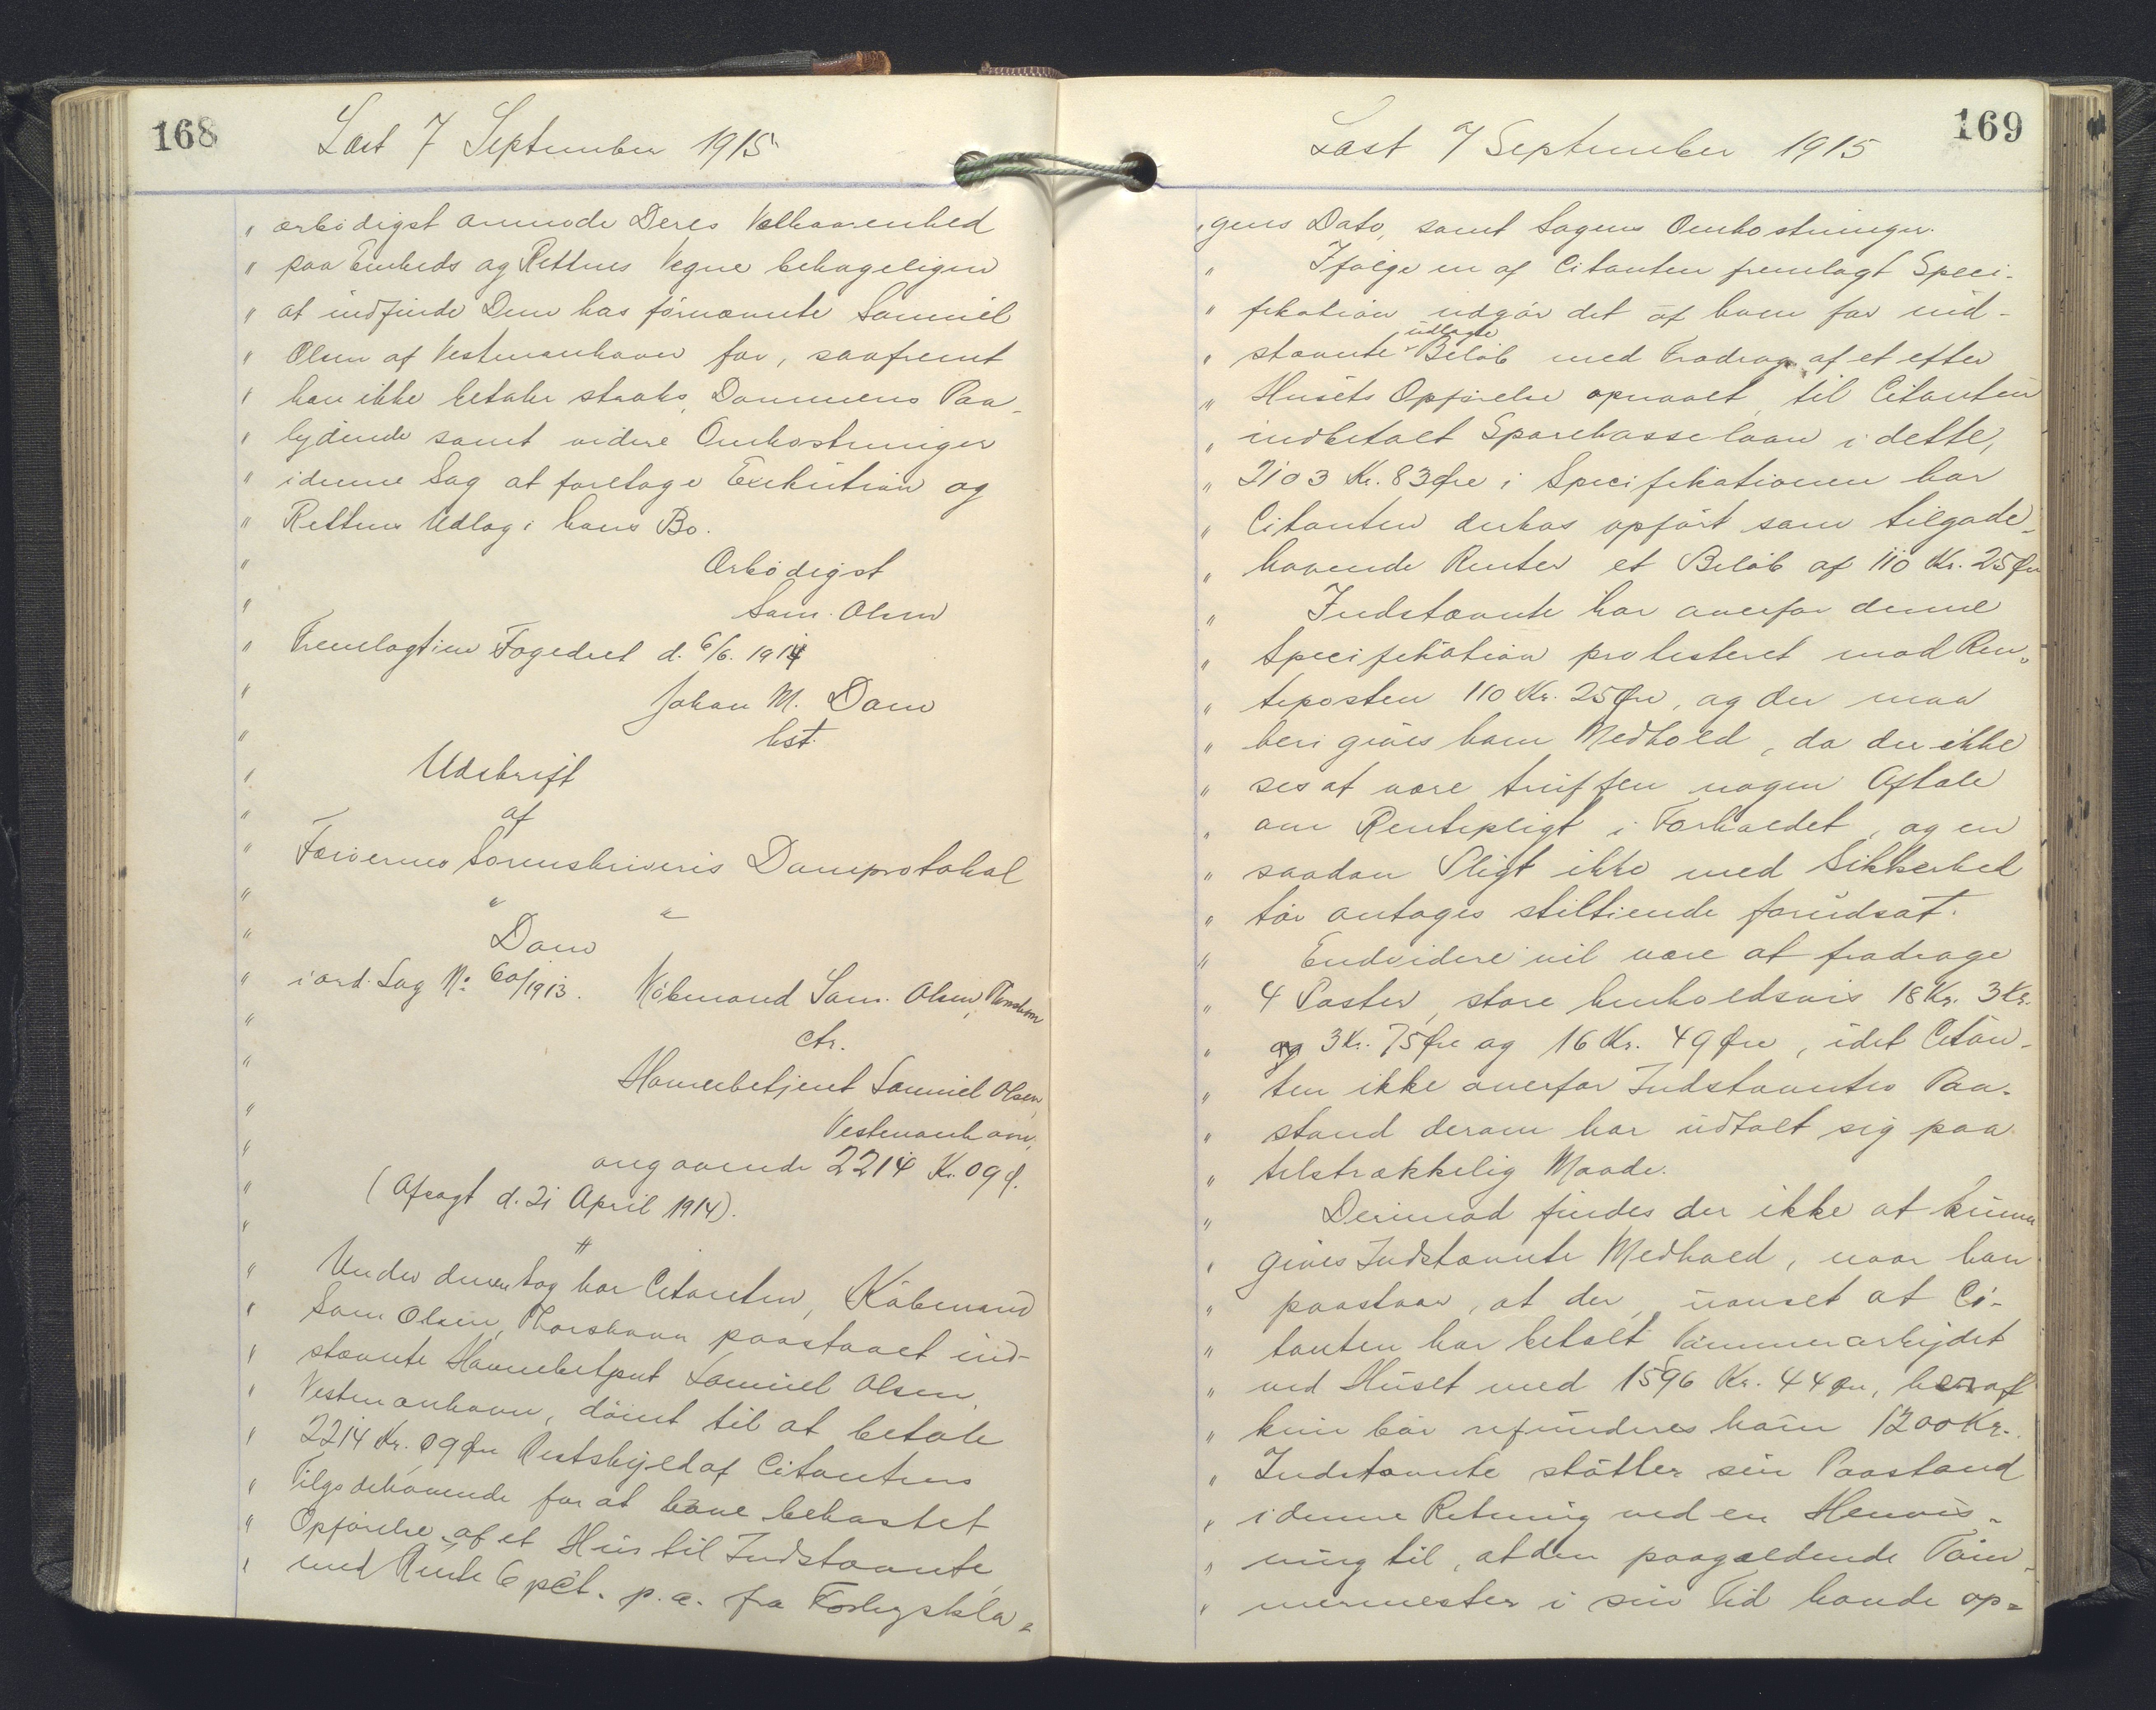 168
Læst 7 September 1915
ærbødigst anmode Deres Velbaarenhed
paa Embeds og Rettens Vegne behageligen
at indfinde Dem hos fornævnte Samuel
Olsen af Vestmanhavn for, saafremt
han ikke betaler straks, Dommens Paa-
lydende samt videre Omkostninger
i denne Sag at foretage Exekution og
Rettens Udlæg i hans Bo.
Ærbødigst
Sam. Olsen
Fremlagt i en Fogedret d. 6/6. 1914
Johan M. Dam
kst.
Udskrift
af
Færøernes Sorenskriveris Domprotokol
" "
Dom
i ord. Sag No 60/1913. Købmand Sam. Olsen, Thorshavn
ctr.
Havnebetjent Samuel Olsen,
Vestmanhavn,
angaaende 2214 Kr. 09 Ø.
(Afsagt d. 21 April 1914).
"
Under denne Sag har Citanten, Købmand
Sam Olsen, Thorshavn paastaaet ind-
stævnte Havnebetjent Samuel Olsen,
Vestmanhavn, dømt til at betale
2214 Kr. 09 Øre Restskyld af Citantens
Tilgodehavende for at have bekostet
Opførelse af et Hus til Indstævnte,
med Rente 6 pct. p. a. fra Forligskla-
169
Læst 7 September 1915
gens Dato, samt Sagens Omkostninger.
Ifølge en af Citanten fremlagt Speci-
fikation udgør det af ham for ind-
stævnte udlagte Beløb med Fradrag af et efter
Husets Opførelse opnaaet, til Citanten
indbetalt Sparekasselaan i dette,
2103 Kr. 83 Øre i Specifikationen har
Citanten derhos opført som tilgode-
havende Renter et Beløb af 110 Kr. 25 Øre
Indstævnte har overfor denne
Specifikation protesteret mod Ren-
teposten 110 Kr. 25 Øre, og der maa
heri gives ham Medhold, da der ikke
ses at være truffen nogen Aftale
om Rentepligt i Forholdet, og en
saadan Pligt ikke med Sikkerhed
tør antages stiltiende forudsat.
Endvidere vil være at fradrage
4 Poster, store henholdsvis 18 Kr. 3 Kr.
og 3 Kr. 75 Øre og 16 Kr. 49 Øre, idet Citan-
ten ikke overfor Indstævntes Paa-
stand derom har udtalt sig paa
tilstrækkelig Maade.
Derimod findes der ikke at kunne
gives Indstævnte Medhold, naar han
paastaar, at der, uanset at Ci-
tanten har betalt Tømmerarbejdet
ved Huset med 1596 Kr. 44 Øre, heraf
kun bør refunderes ham 1200 Kr.
Indstævnte støtter sin Paastand
i denne Retning ved en Henvis-
ning til, at den paagældende Tøm-
mermester i sin Tid havde op-